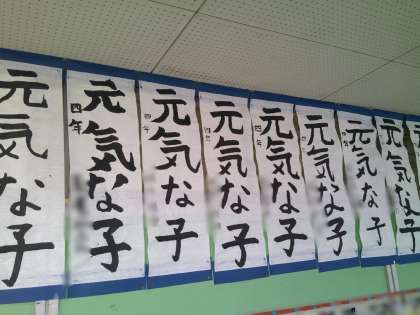 元気な子
元気な子
四年
元気な子
四年
元気な子
四年
元気な子
四年
元気な子
四年
元気な子
四年
元気な子
元気な子